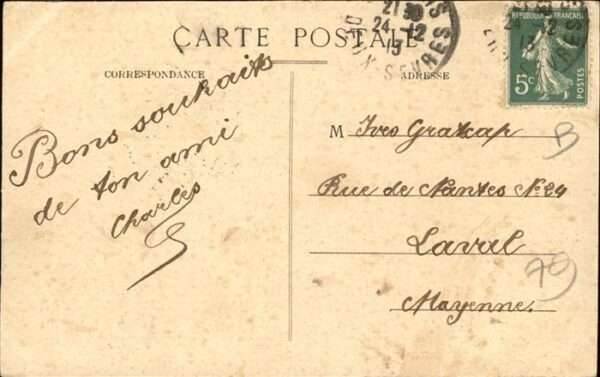 CARTE POSTALE
CORRESPONDANCE
ADRESSE
21 30
24 12
13
SEVRES
RÉPUBLIQUE FRANÇAISE
5c
POSTES
Bons souhaits
de ton ami
Charles
M Yves Gratcap
Rue de Nantes No 24
Laval
Mayenne.
B
79